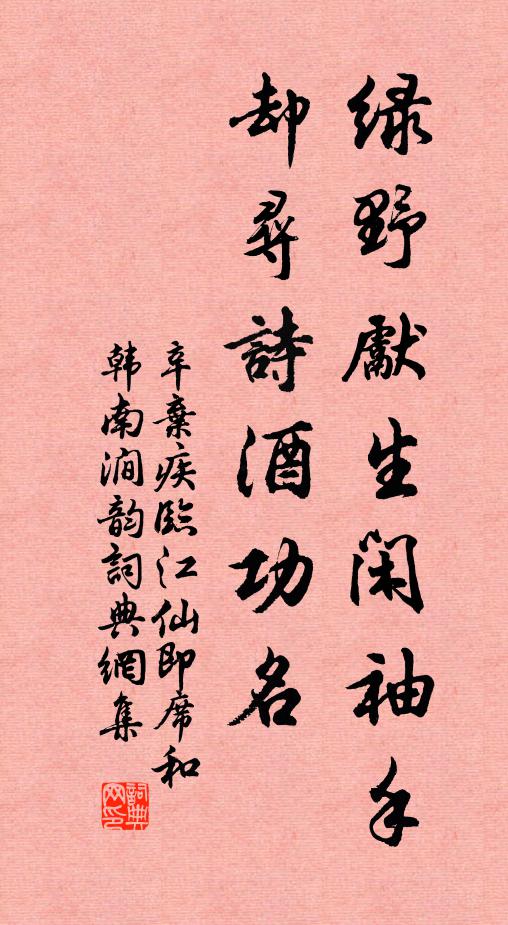 绿野獻生閑袖手
却尋詩酒功名
辛棄疾臨江仙即席和
韩南澗韵詞典網集
詞典网印